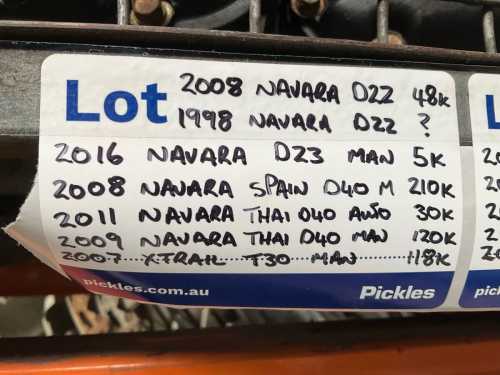 Lot
2008 NAVARA D22 48K
1998 NAVARA D22 ?
2016 NAVARA D23 MAN 5K
2008 NAVARA SPAIN D40 M 210K
2011 NAVARA THAI D40 AUTO 30K
2009 NAVARA THAI D40 MAN 120K
2007 XTRAIL T30 MAN 118K
pickles.com.au
Pickles